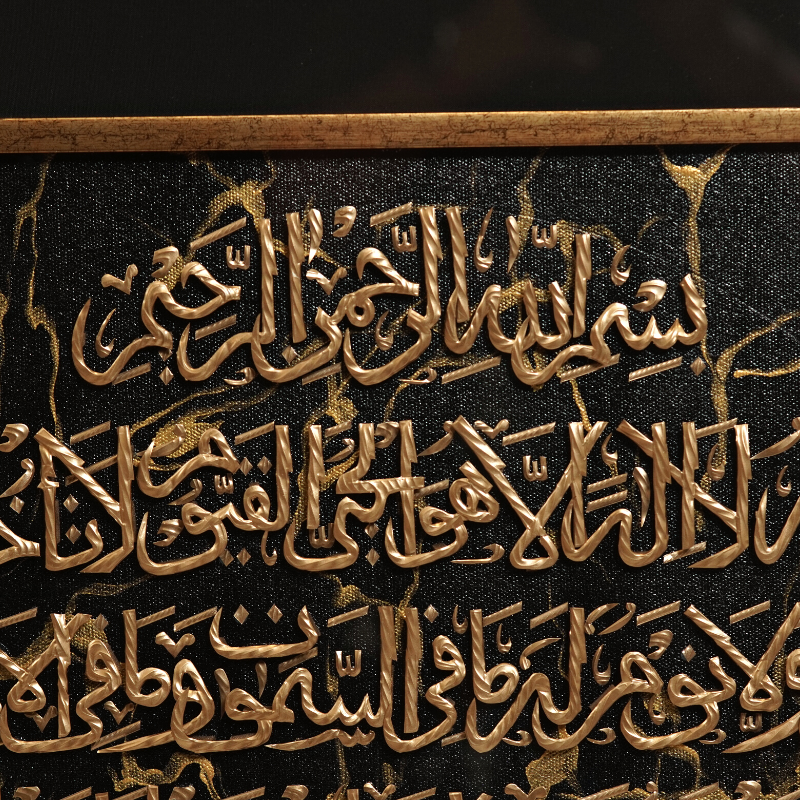 بِسْمِ اللَّهِ الرَّحْمَٰنِ الرَّحِيمِ
لَا إِلَٰهَ إِلَّا هُوَ الْحَيُّ الْقَيُّومُ لَا تَأْخُذُ
وَلَا نَوْمٌ لَهُ مَا فِي السَّمَاوَاتِ وَمَا فِي الْأَ